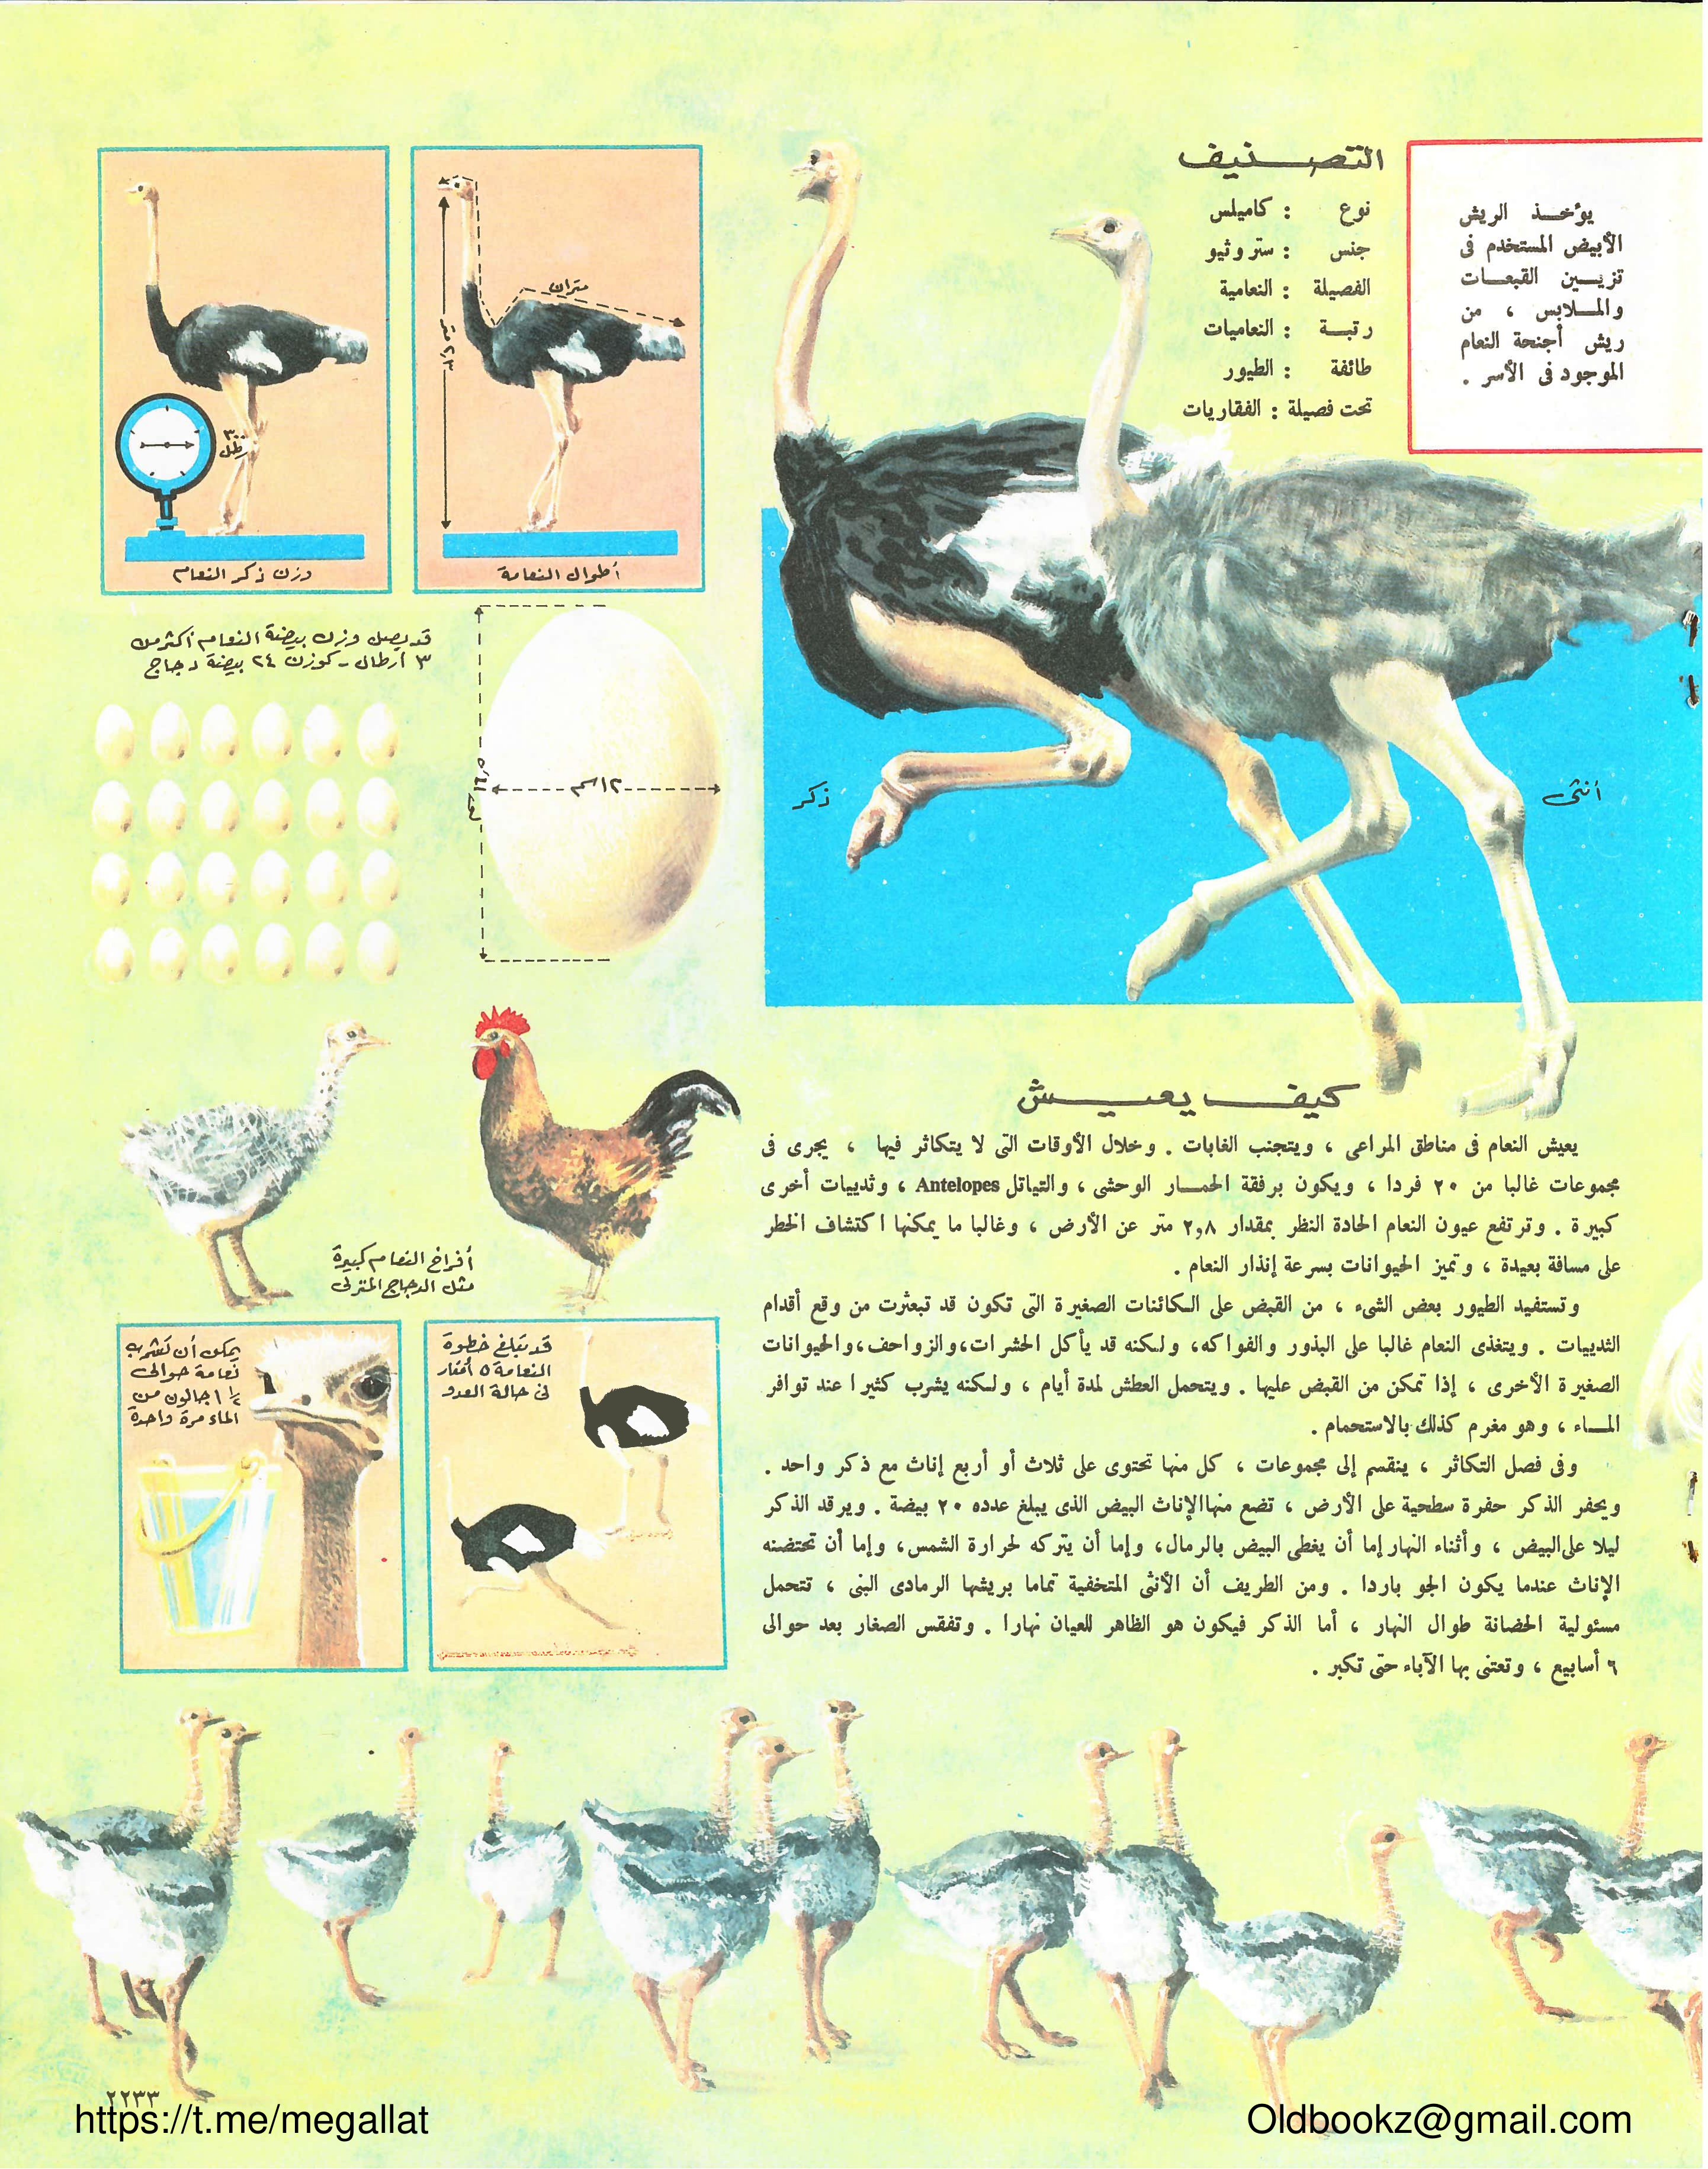 يؤخـــذ الريش
الأبيض المستخدم فى
تزيـــين القبعـــات
والمـــلابس ، من
ريش أجنحة النعام
الموجود فى الأسر .
التصنيف
نوع : كاميلس
جنس : ستروثيو
الفصيلة : النعامية
رتبـــة : النعاميات
طائفة : الطيور
تحت فصيلة : الفقاريات
أنثى
ذكر
متران
أطوال النعامة
٣٠٠
رطل
وزن ذكر النعام
قد يصل وزن بيضة النعام أكثر من
٣ أرطال - كوزن ٢٤ بيضة دجاج
١٢ سم
أفراخ النعام كبيرة
مثل الدجاج المنزلى
قد تبلغ خطوة
النعامة ٥ أمتار
فى حالة العدو
يمكن أن تشرب
نعامة حوالى
١ ١/٢ جالون من
الماء مرة واحدة
كيف يعيش
يعيش النعام فى مناطق المراعى ، ويتجنب الغابات . وخلال الأوقات التى لا يتكاثر فيها ، يجرى فى
مجموعات غالبا من ٢٠ فردا ، ويكون برفقة الحمـــار الوحشى ، والتياتل Antelopes ، وثدييات أخرى
كبيرة . وترتفع عيون النعام الحادة النظر بمقدار ٢,٨ متر عن الأرض ، وغالبا ما يمكنها اكتشاف الخطر
على مسافة بعيدة ، وتميز الحيوانات بسرعة إنذار النعام .
وتستفيد الطيور بعض الشىء ، من القبض على الكائنات الصغيرة التى تكون قد تبعثرت من وقع أقدام
الثدييات . ويتغذى النعام غالبا على البذور والفواكه، ولكنه قد يأكل الحشرات،والزواحف،والحيوانات
الصغيرة الأخرى ، إذا تمكن من القبض عليها . ويتحمل العطش لمدة أيام ، ولكنه يشرب كثيرا عند توافر
المـــاء ، وهو مغرم كذلك بالاستحمام .
وفى فصل التكاثر ، ينقسم إلى مجموعات ، كل منها تحتوى على ثلاث أو أربع إناث مع ذكر واحد .
ويحفر الذكر حفرة سطحية على الأرض ، تضع منها الإناث البيض الذى يبلغ عدده ٢٠ بيضة . ويرقد الذكر
ليلا على البيض ، وأثناء النهار إما أن يغطى البيض بالرمال، وإما أن يتركه لحرارة الشمس، وإما أن تحتضنه
الإناث عندما يكون الجو باردا . ومن الطريف أن الأنثى المتخفية تماما بريشها الرمادى البنى ، تتحمل
مسئولية الحضانة طوال النهار ، أما الذكر فيكون هو الظاهر للعيان نهارا . وتفقس الصغار بعد حوالى
٦ أسابيع ، وتعتنى بها الآباء حتى تكبر .
٢٢٣٣
https://t.me/megallat
Oldbookz@gmail.com